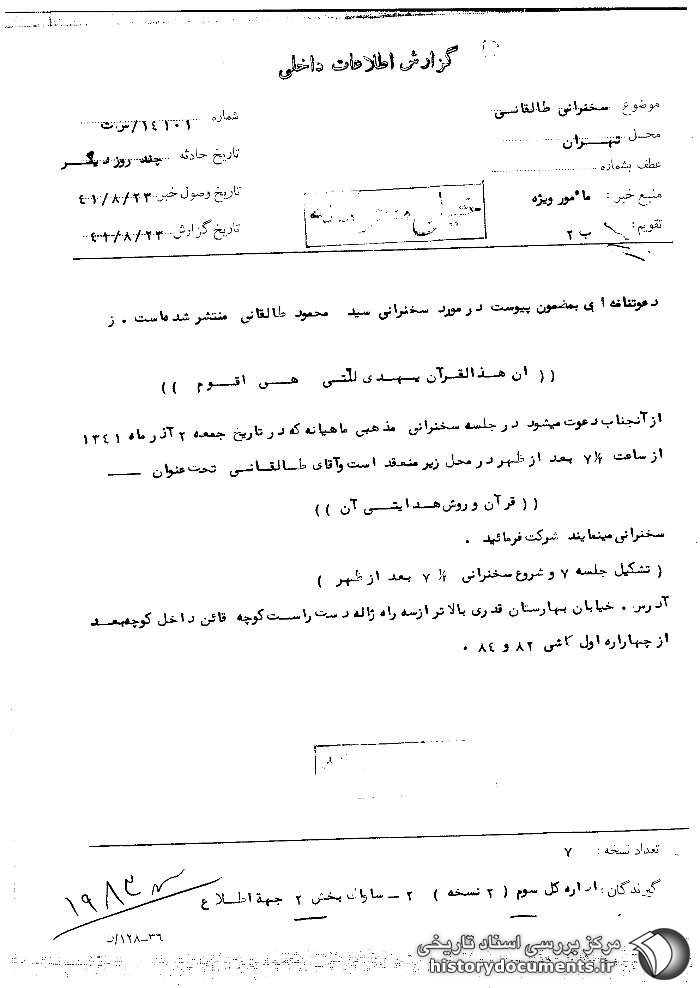 گزارش اطلاعات داخلی
موضوع سخنرانی طالقانی
شماره ۱۴۱۰۱/س ت
محل تهران
تاریخ حادثه چند روز دیگر
عطف بشماره
تاریخ وصول خبر ۴۱/۸/۲۳
منبع خبر: مأمور ویژه
تاریخ گزارش ۴۱/۸/۲۳
تقویم: ب ۲
دعوتنامه ای بمضمون پیوست در مورد سخنرانی سید محمود طالقانی منتشر شده است . ز
(( ان هذالقرآن یهدی للتی هی اقوم ))
از آنجناب دعوت میشود در جلسه سخنرانی مذهبی ماهیانه که در تاریخ جمعه ۲ آذر ماه ۱۳۴۱
از ساعت ۷½ بعد از ظهر در محل زیر منعقد است و آقای طالقانی تحت عنوان ــــ
(( قرآن و روش هدایتی آن ))
سخنرانی مینمایند شرکت فرمائید .
( تشکیل جلسه ۷ و شروع سخنرانی ۷½ بعد از ظهر )
آدرس . خیابان بهارستان قدری بالاتر از سه راه ژاله دست راست کوچه قائن داخل کوچه بعد
از چهاراره اول کاشی ۸۲ و ۸۴ .
تعداد نسخه : ۷
گیرندگان: اداره کل سوم ( ۲ نسخه ) ۲ – ساواک بخش ۲ جهة اطلاع
۱۹۸۳
۳۶–۱۲۸/د
مرکز بررسی اسناد تاریخی
historydocuments.ir